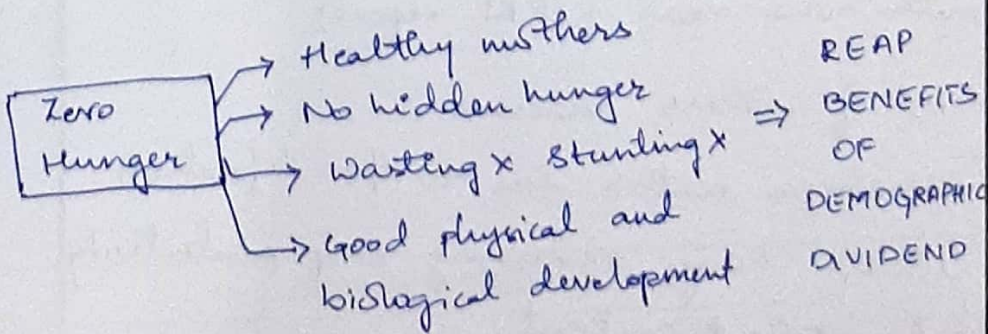 Zero
Hunger
→ Healthy mothers
→ No hidden hunger
→ Wasting x Stunting x
→ Good physical and
biological development
⇒ REAP
BENEFITS
OF
DEMOGRAPHIC
DIVIDEND